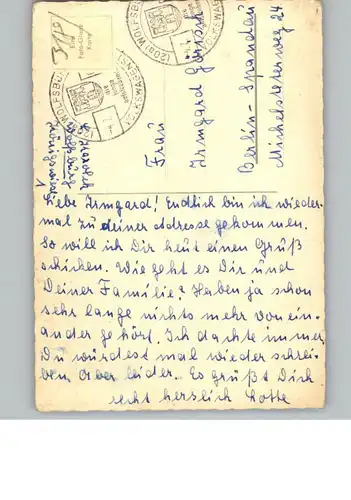 (20a) WOLFSBURG
VOLKSWAGENST
Foto-Glanz
Karte
Frau
Irmgard
Berlin-Spandau
24
Wolfsburg
Liebe Irmgard! Endlich bin ich wieder-
mal zu deiner Adresse gekommen.
So will ich Dir heut einen Gruß
schicken. Wie geht es Dir und
Deiner Familie? Haben ja schon
sehr lange nichts mehr von ein-
ander gehört. Ich dachte immer
Du würdest mal wieder schrei-
ben. Aber leider. Es grüßt Dich
recht herzlich Lotte